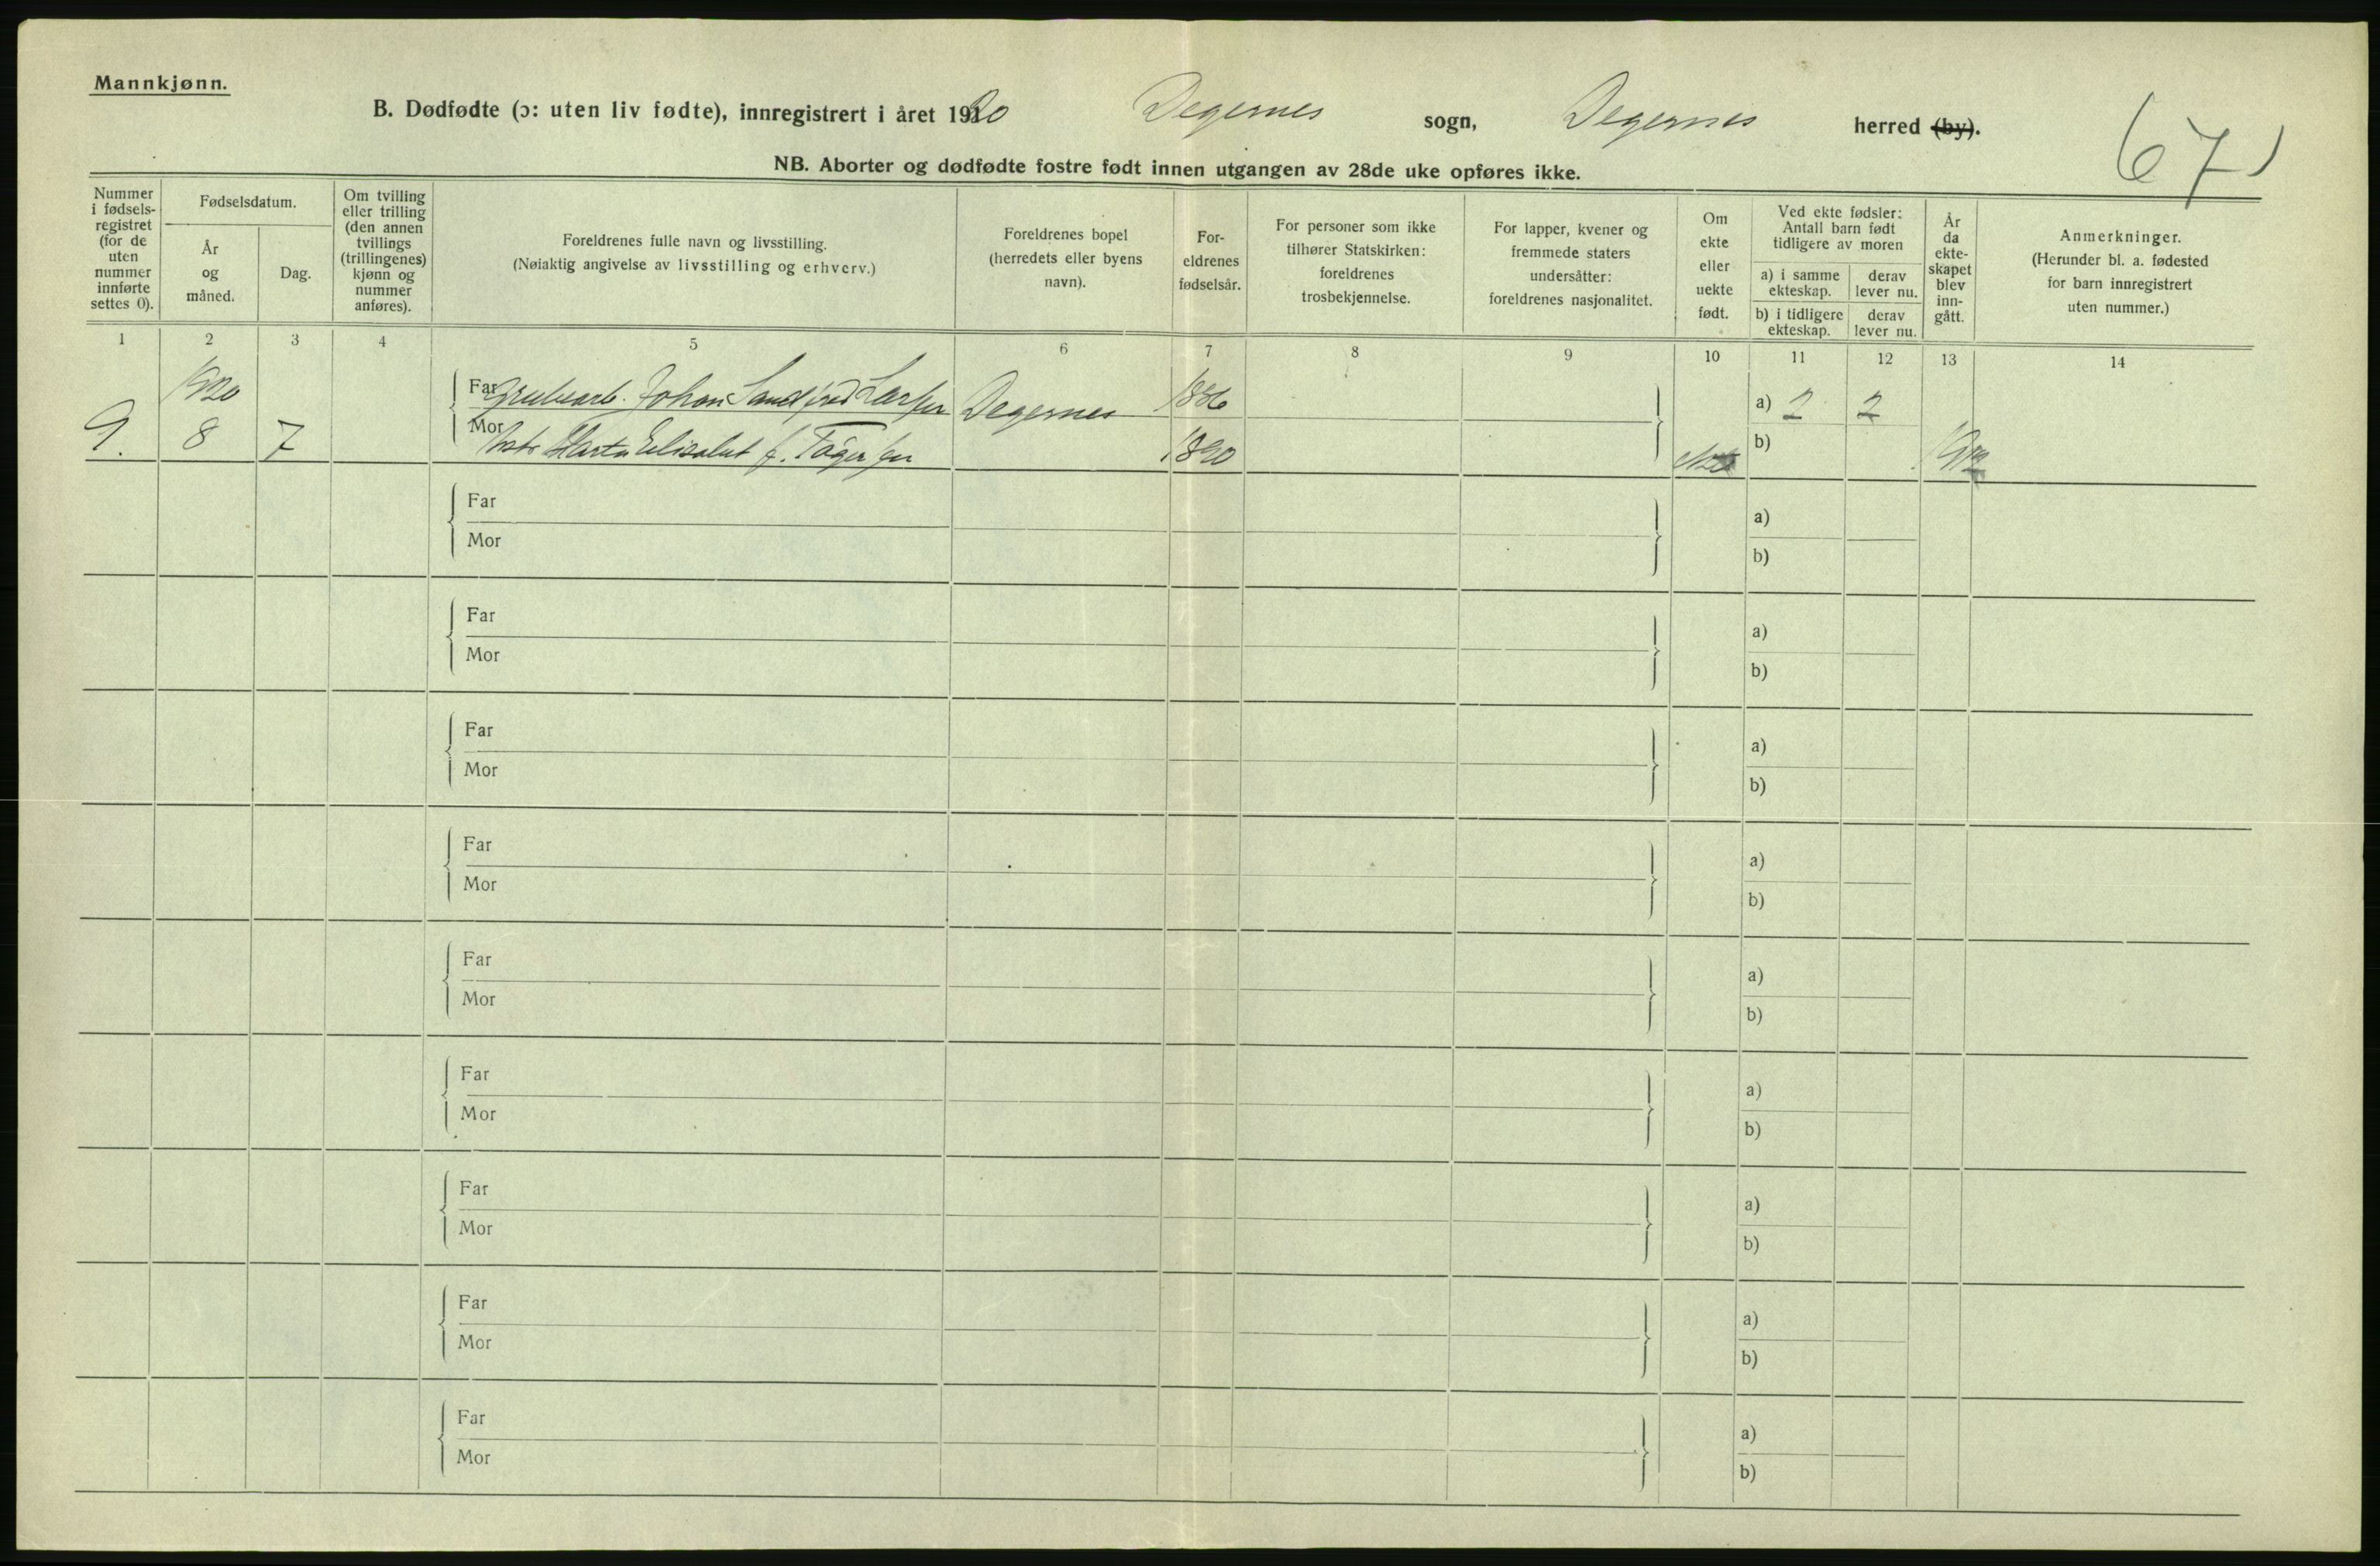 Mannkjønn.
B. Dødfødte (ɔ: uten liv fødte), innregistrert i året 1920 Degernes sogn, Degernes herred (by).
67)
NB. Aborter og dødfødte fostre født innen utgangen av 28de uke opføres ikke.
Nummer i fødsels-registret (for de uten nummer innførte settes 0).
Fødselsdatum.
År og måned.
Dag.
Om tvilling eller trilling (den annen tvillings (trillingenes) kjønn og nummer anføres).
Foreldrenes fulle navn og livsstilling.
(Nøiaktig angivelse av livsstilling og erhverv.)
Foreldrenes bopel (herredets eller byens navn).
For-eldrenes fødselsår.
For personer som ikke tilhører Statskirken: foreldrenes trosbekjennelse.
For lapper, kvener og fremmede staters undersåtter: foreldrenes nasjonalitet.
Om ekte eller uekte født.
Ved ekte fødsler: Antall barn født tidligere av moren
a) i samme ekteskap.
derav lever nu.
b) i tidligere ekteskap.
derav lever nu.
År da ekte-skapet blev inn-gått.
Anmerkninger.
(Herunder bl. a. fødested for barn innregistrert uten nummer.)
1 2 3 4 5 6 7 8 9 10 11 12 13 14
1920 Far Grubearb. Johan Sandfred Larsen Degernes 1886 a) 2 2
9. 8 7 Mor Marta Elisabet f. 1890 b) 1912
Far a)
Mor b)
Far a)
Mor b)
Far a)
Mor b)
Far a)
Mor b)
Far a)
Mor b)
Far a)
Mor b)
Far a)
Mor b)
Far a)
Mor b)
Far a)
Mor b)